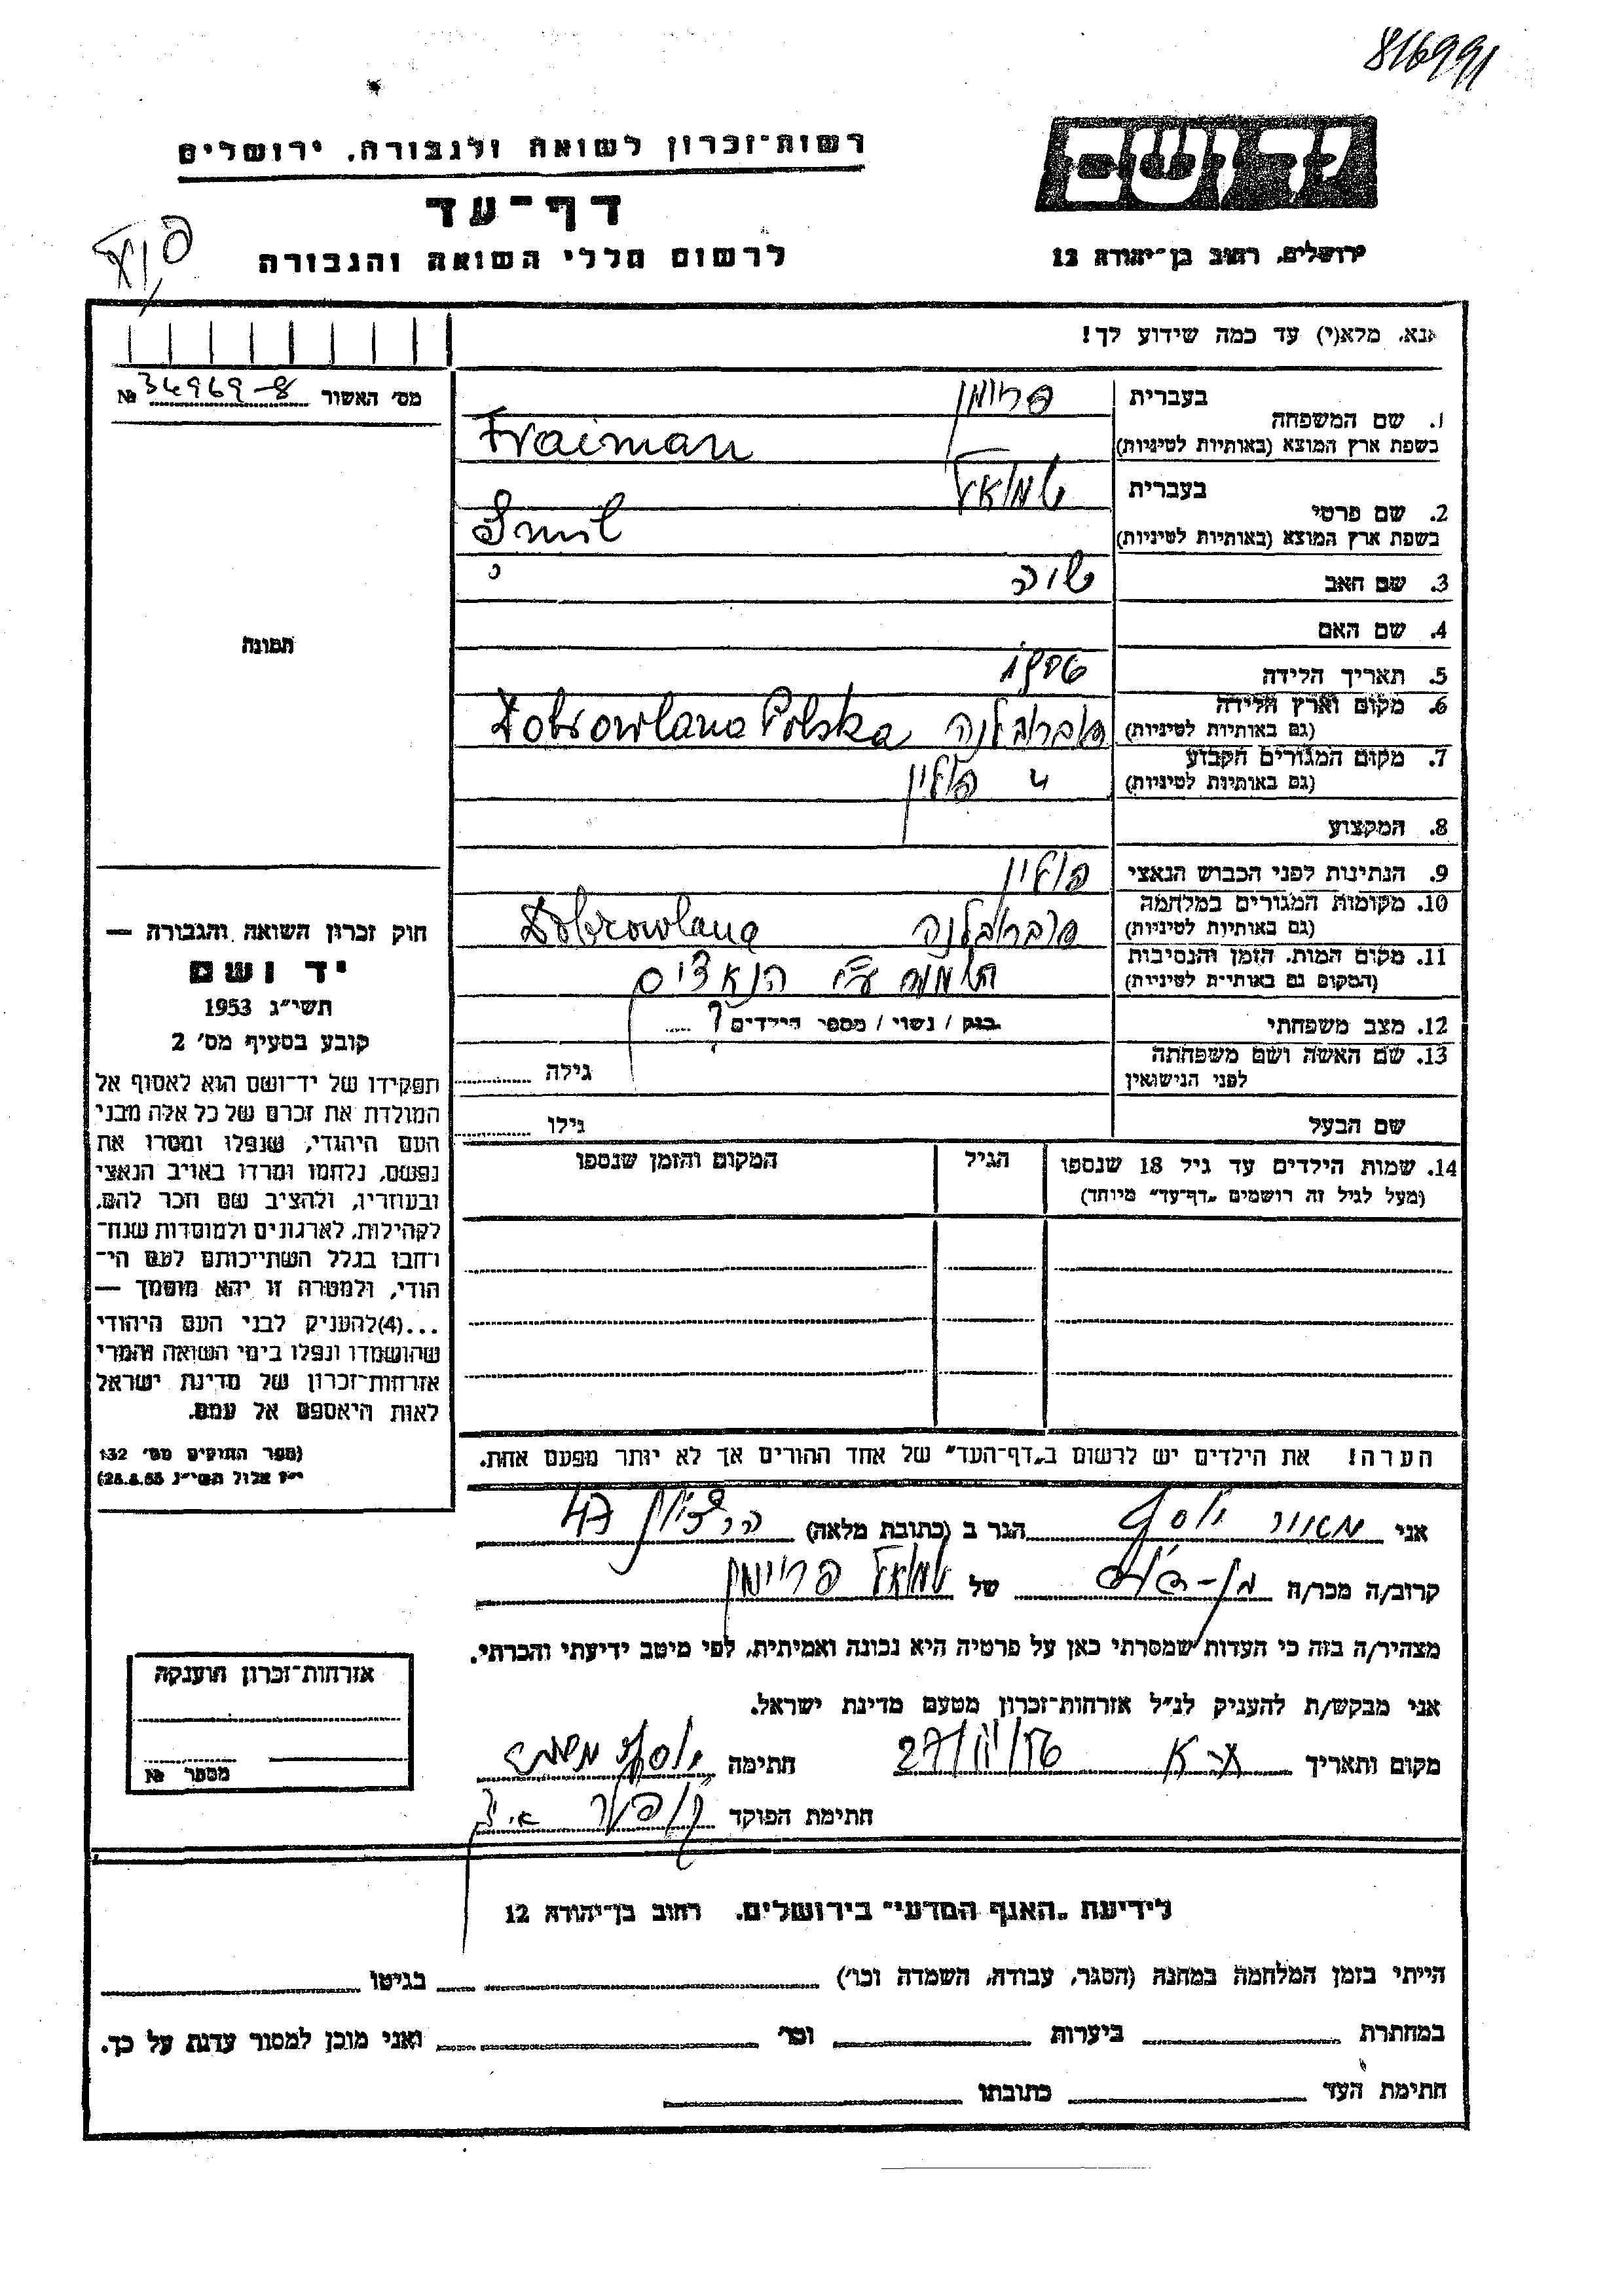 816991
רשות־זכרון לשואה ולגבורה, ירושלים
דף־עד
לרשום חללי השואה והגבורה
ירושלים, רחוב בן־יהודה 12
אנא, מלא(י) עד כמה שידוע לך!
מס׳ האשור 34969-8 №
תמונה
1. שם המשפחה
בעברית פרוימן
בשפת ארץ המוצא (באותיות לטיניות) Fraiman
2. שם פרטי
בעברית שמואל
בשפת ארץ המוצא (באותיות לטיניות) Smil
3. שם האב
4. שם האם
5. תאריך הלידה
6. מקום וארץ הלידה
(גם באותיות לטיניות) Dobrowlana Polska
7. מקום המגורים הקבוע
(גם באותיות לטיניות) פולין
8. המקצוע
9. הנתינות לפני הכבוש הנאצי פולין
10. מקומות המגורים במלחמה
(גם באותיות לטיניות) Dobrowlana
11. מקום המות, הזמן והנסיבות
(המקום גם באותיות לטיניות) הושמד ע״י הנאצים
12. מצב משפחתי רווק / נשוי / מספר הילדים ?
13. שם האשה ושם משפחתה
לפני הנישואין
גילה
שם הבעל גילו
14. שמות הילדים עד גיל 18 שנספו
(מעל לגיל זה רושמים „דף־עד״ מיוחד)
הגיל
המקום והזמן שנספו
הערה! את הילדים יש לרשום ב„דף־העד״ של אחד ההורים אך לא יותר מפעם אחת.
חוק זכרון השואה והגבורה —
יד ושם
תשי״ג 1953
קובע בסעיף מס׳ 2
תפקידו של יד־ושם הוא לאסוף אל
המולדת את זכרם של כל אלה מבני
העם היהודי, שנפלו ומסרו את
נפשם, נלחמו ומרדו באויב הנאצי
ובעוזריו, ולהציב שם וזכר להם,
לקהילות, לארגונים ולמוסדות שנח־
רבו בגלל השתייכותם לעם הי־
הודי, ולמטרה זו יהא מוסמך —
...(4)להעניק לבני העם היהודי
שהושמדו ונפלו בימי השואה והמרי
אזרחות־זכרון של מדינת ישראל
לאות היאספם אל עמם.
(ספר החוקים מס׳ 132
י״ז אלול תשי״ג 28.8.53)
אני מאור יוסף הגר ב (כתובת מלאה) הרצליה 47
קרוב/ה מכר/ה של שמואל פריימן
מצהיר/ה בזה כי העדות שמסרתי כאן על פרטיה היא נכונה ואמיתית, לפי מיטב ידיעתי והכרתי.
אני מבקש/ת להעניק לנ״ל אזרחות־זכרון מטעם מדינת ישראל.
מקום ותאריך ת-א 27/II/56 חתימה
חתימת הפוקד
אזרחות־זכרון הוענקה
מספר №
לידיעת „האגף המדעי״ בירושלים, רחוב בן־יהודה 12
הייתי בזמן המלחמה במחנה (הסגר, עבודה, השמדה וכו׳) בגיטו
במחתרת ביערות וכו׳ ואני מוכן למסור עדות על כך.
חתימת העד כתובתו